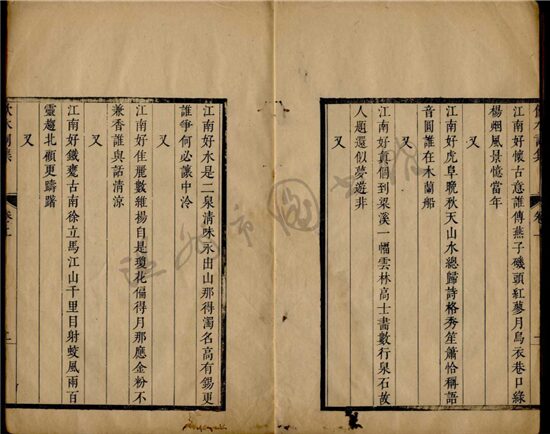 江南好懷古意誰傳燕子磯頭紅蓼月烏衣巷口綠
楊烟風景憶當年
又
江南好虎阜晚秋天山水總歸詩格秀笙簫恰稱語
音圓誰在木蘭船
又
江南好真個到梁溪一幅雲林高士畫數行泉石故
人題還似夢遊非
又
江南好水是二泉清味永出山那得濁名高有錫更
誰爭何必讓中泠
又
江南好佳麗數維揚自是瓊花偏得月那應金粉不
兼香誰與話清涼
又
江南好鐵甕古南徐立馬江山千里目射蛟風雨百
靈趨北顧更躊躇